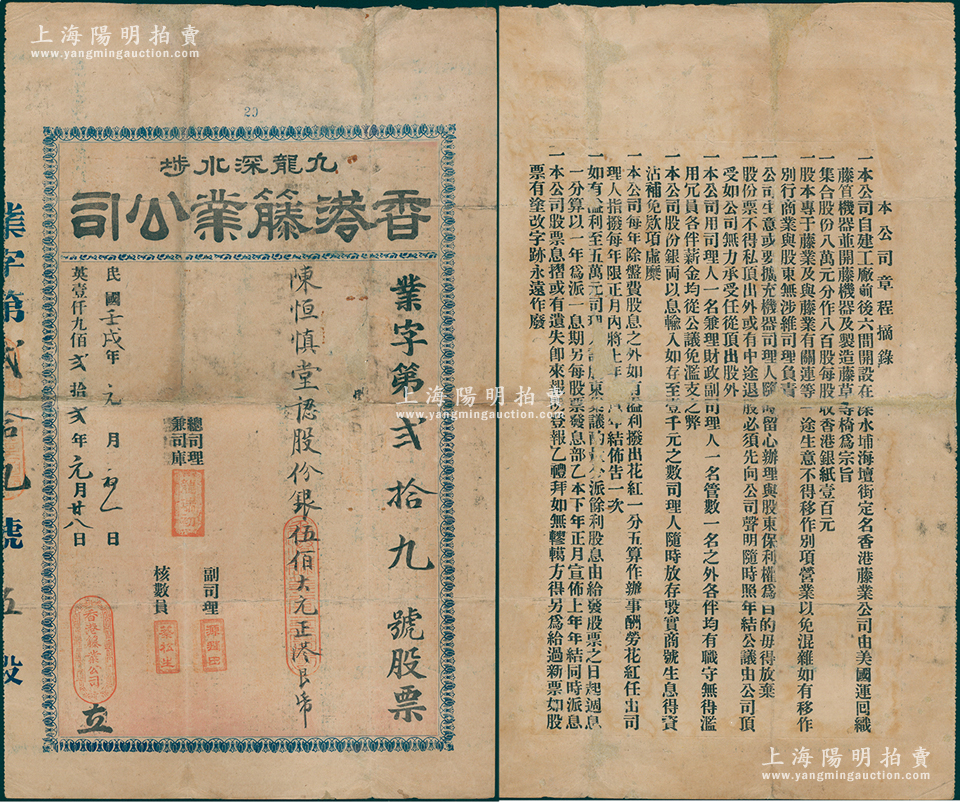 上海陽明拍賣
www.yangmingauction.com
29
九龍深水埗
香港籐業公司
業字第弍拾九號股票
陳恒慎堂認股份銀伍佰大元正
總司理
兼司庫
副司理
核數員
蔡松生
民國壬戌年元月初一日
英壹仟九佰弍拾弍年元月廿八日
香港籐業公司
立
業字第弍拾九號伍股
上海陽明拍賣
www.yangmingauction.com
本公司章程摘錄
一本公司自建工廠前後六間開設在深水埔海壇街定名香港藤業公司由美國運回織
藤笪機器並開藤機器及製造藤草等椅為宗旨
一集合股份八萬元分作八百股每股收香港銀紙壹百元
一股本專于藤業及與藤業有關連等一途生意不得移作別項營業以免混雜如有移作
別行商業與股東無涉維司理負責
一公司生意或要擴充機器司理人隨時留心辦理與股東保利權為目的毋得放棄
一股份票不得私頂出外或有中途退股必須先向公司聲明隨時照年結公議出公司頂
受如公司無力承受任從頂出股外
一本公司用司理人一名兼理財政副司理人一名管數一名之外各伴均有職守無得濫
用冗員各伴薪金均從公議免濫支之弊
一本公司股份銀両以息輸入如存至壹千元之數司理人隨時放存殷實商號生息得資
沾補免欵項虛糜
一本公司每年除盤費股息之外如有溢利撥出花紅一分五算作辦事酬勞花紅任出司
理人指撥每年限正月內將上年年結佈告一次
一如有溢利至五萬元司理人股東集議而公派餘利股息由給發股票之日起週息
一分算以一年為派一息期另每股票發息部乙本下年正月宣佈上年年結同時派息
一本公司股票息摺或有遺失即來報明登報乙禮拜如無轇轕方得另為給過新票如股
票有塗改字跡永遠作廢
上海陽明拍賣
www.yangmingauction.com